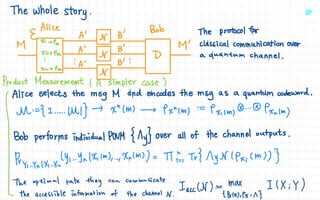 The whole story.
Alice
Bob
A' N B'
A' N B'
A' N B'
M
D
M'
The protocol for
classical communication over
a quantum channel.
Product Measurement (A simpler case)
Alice selects the msg M and encodes the msg as a quantum codeword.
M={1.....|M|} → xⁿ(m) → ρxⁿ(m) := ρx₁(m) ⊗...⊗ ρxₙ(m)
Bob performs individual POVM {Λy} over all of the channel outputs.
The optimal rate they can communicate
the accessible information of the channel N.
I_acc(N) = max I(X;Y)